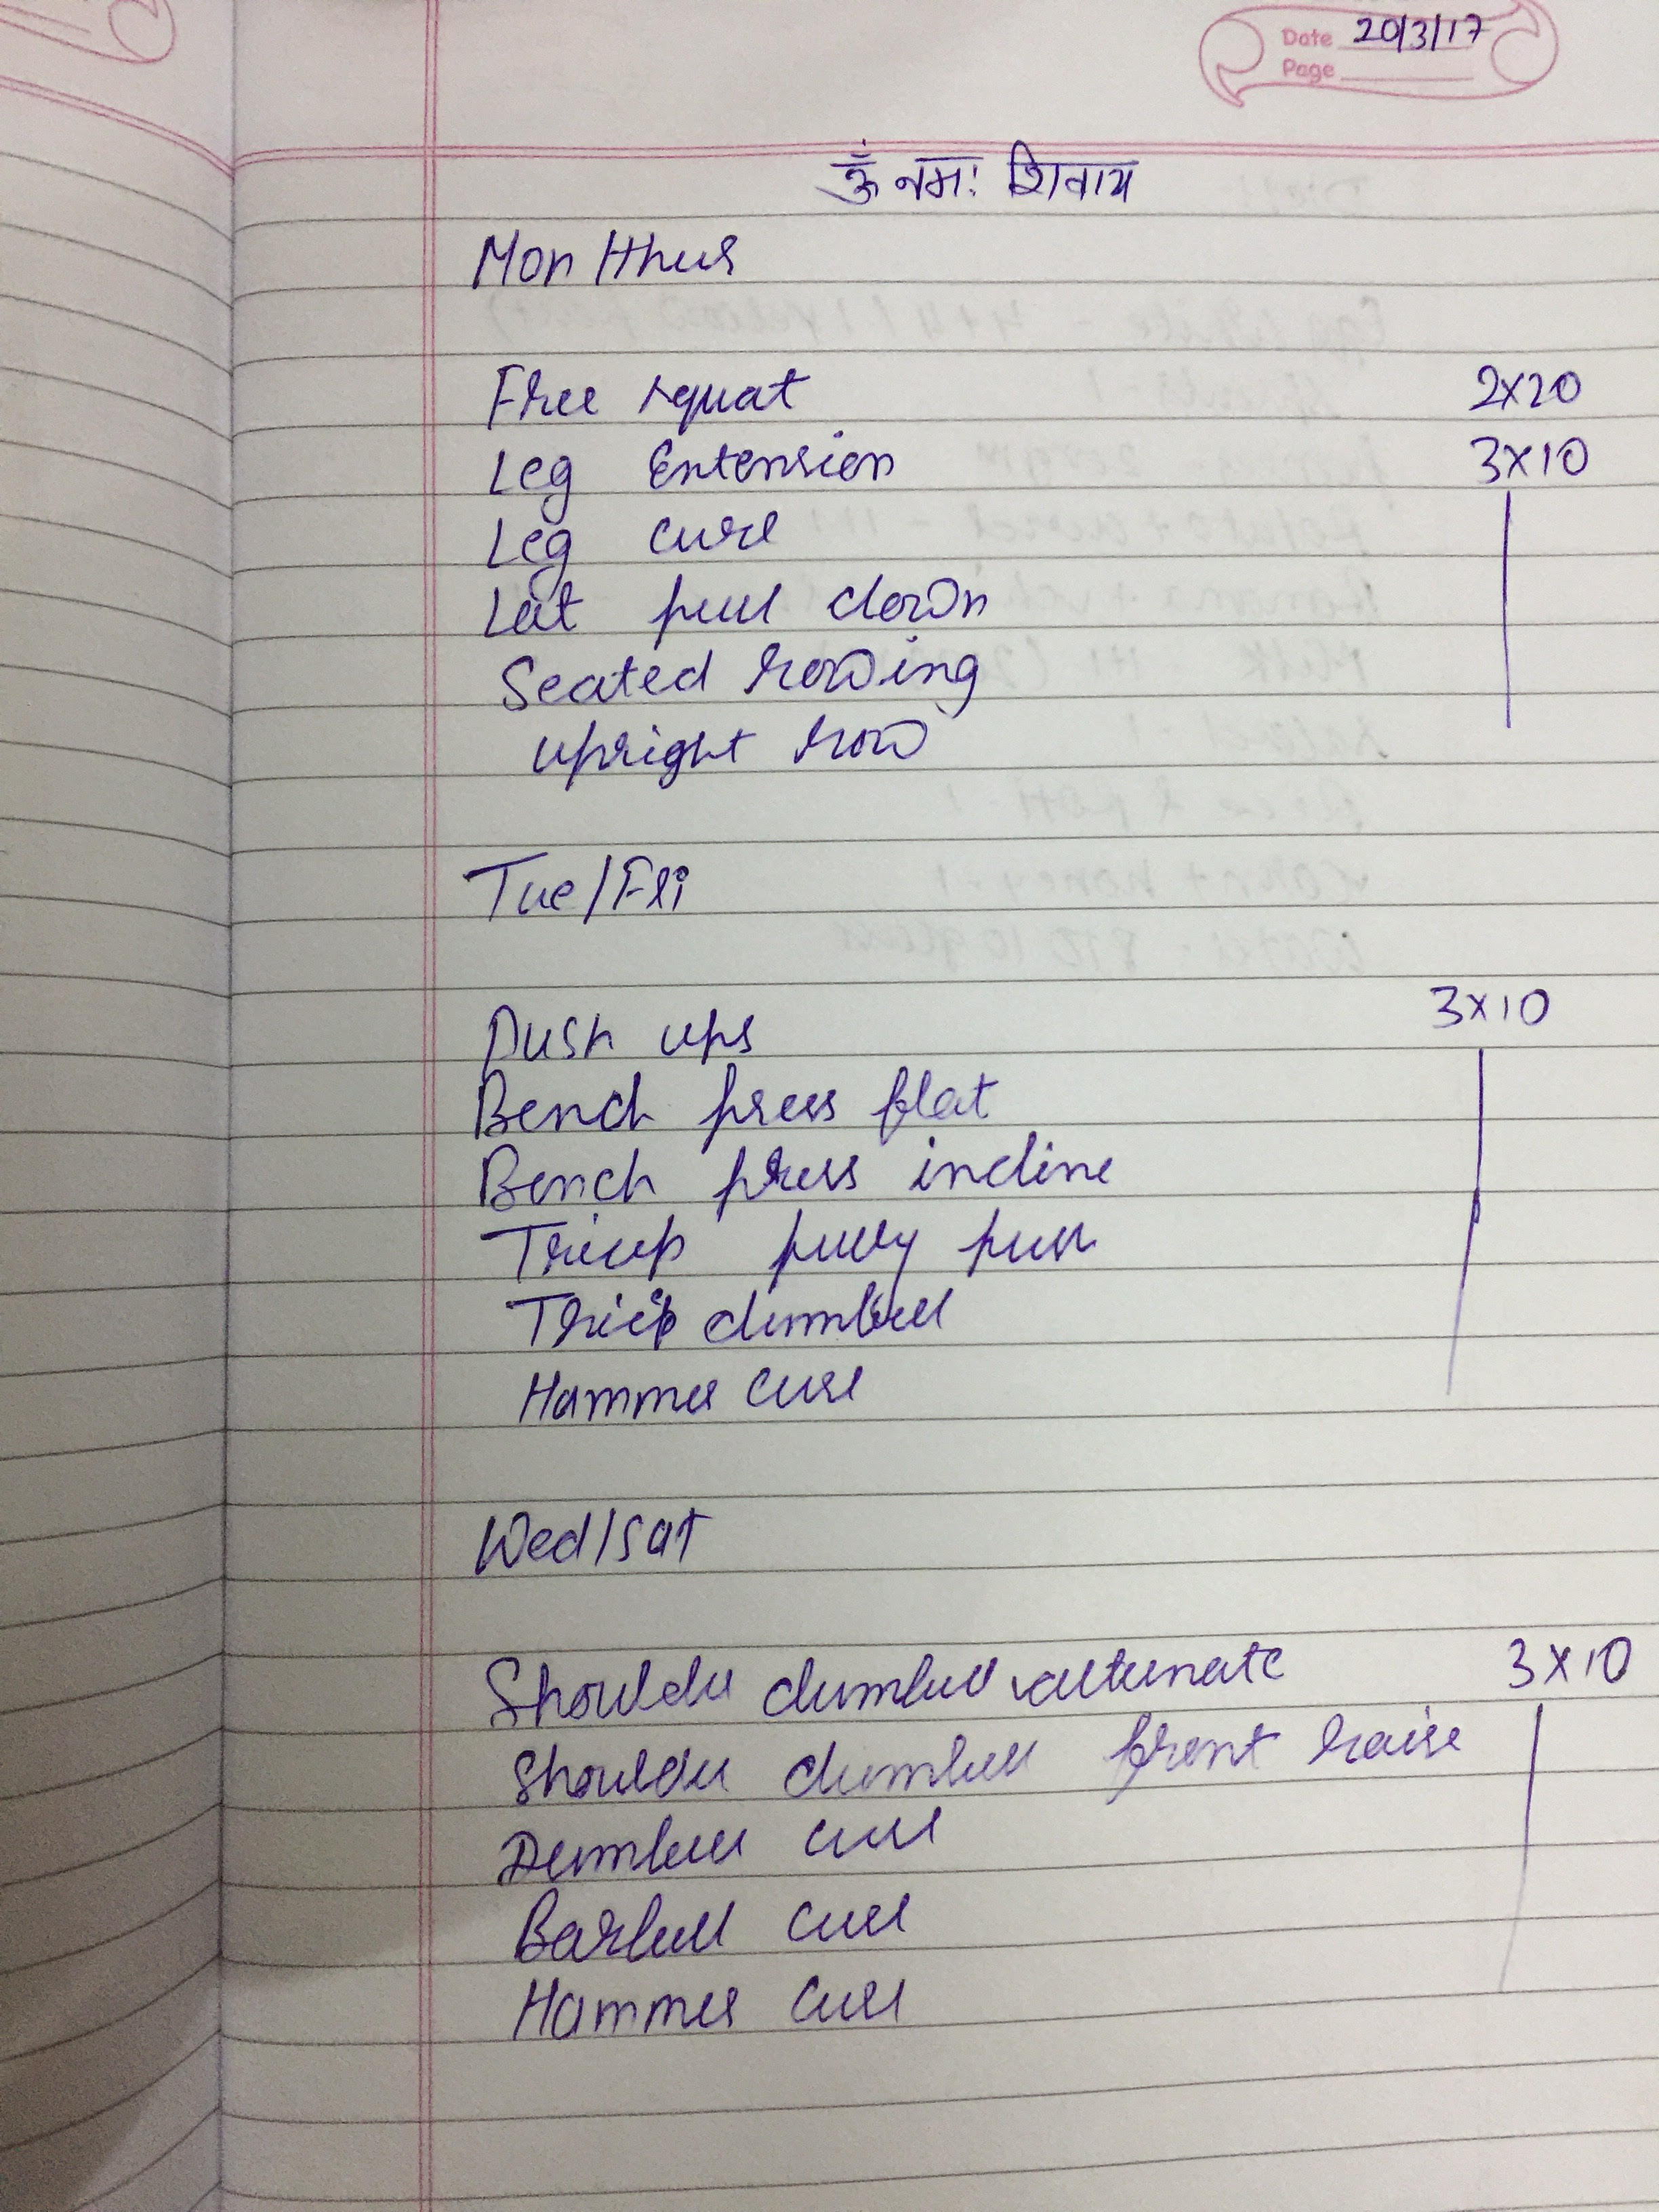 Date 20/3/17
Page
ॐ नमः शिवाय
Mon/thur
Free squat 2x20
Leg Extension 3x10
Leg curl
Lat pull down
Seated rowing
upright row
Tue/Fri
Push ups 3x10
Bench press flat
Bench press incline
Tricep pully push
Tricep dumbell
Hammer curl
Wed/sat
Shoulder dumbell alternate 3x10
Shoulder dumbell front raise
Dumbell curl
Barbell curl
Hammer curl